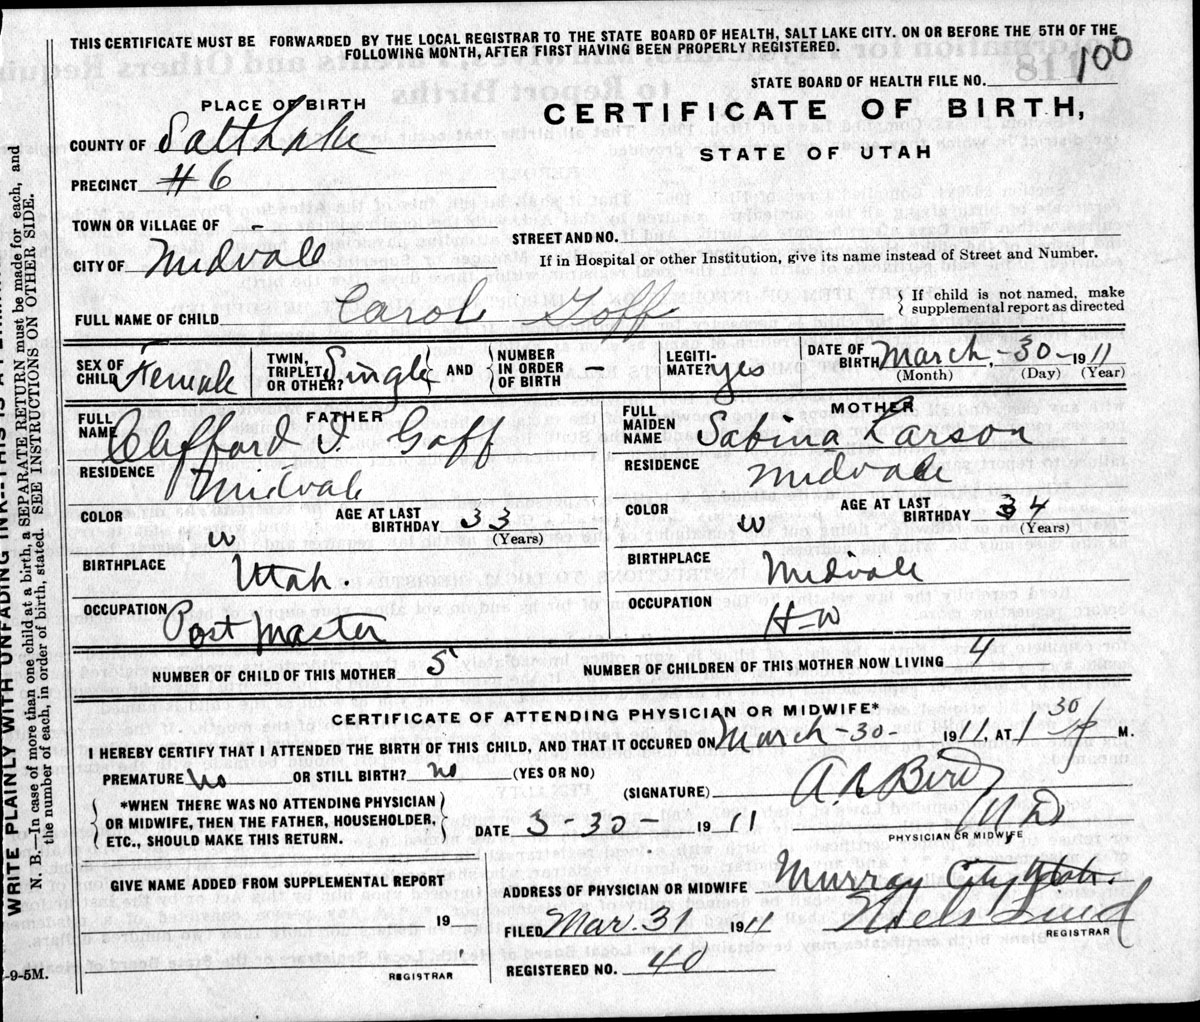 THIS CERTIFICATE MUST BE FORWARDED BY THE LOCAL REGISTRAR TO THE STATE BOARD OF HEALTH, SALT LAKE CITY. ON OR BEFORE THE 5TH OF THE
FOLLOWING MONTH, AFTER FIRST HAVING BEEN PROPERLY REGISTERED.
STATE BOARD OF HEALTH FILE NO. 100
PLACE OF BIRTH
CERTIFICATE OF BIRTH,
COUNTY OF Salt Lake
STATE OF UTAH
PRECINCT #6
TOWN OR VILLAGE OF
STREET AND NO.
CITY OF Midvale
If in Hospital or other Institution, give its name instead of Street and Number.
FULL NAME OF CHILD Carol Goff
} If child is not named, make
supplemental report as directed
SEX OF CHILD Female
TWIN, TRIPLET OR OTHER? Single
AND { NUMBER IN ORDER OF BIRTH –
LEGITIMATE? yes
DATE OF BIRTH March - 30 - 1911
(Month) (Day) (Year)
FATHER
FULL NAME Clifford I. Goff
RESIDENCE Midvale
COLOR w
AGE AT LAST BIRTHDAY 33
(Years)
BIRTHPLACE Utah.
OCCUPATION Post Master
MOTHER
FULL MAIDEN NAME Sabina Larson
RESIDENCE Midvale
COLOR w
AGE AT LAST BIRTHDAY 34
(Years)
BIRTHPLACE Midvale
OCCUPATION H-W
NUMBER OF CHILD OF THIS MOTHER 5 NUMBER OF CHILDREN OF THIS MOTHER NOW LIVING 4
CERTIFICATE OF ATTENDING PHYSICIAN OR MIDWIFE*
I HEREBY CERTIFY THAT I ATTENDED THE BIRTH OF THIS CHILD, AND THAT IT OCCURED ON March - 30 - 1911, AT 1 30 P M.
PREMATURE no OR STILL BIRTH? no (YES OR NO)
(SIGNATURE) A R Bird
M D
PHYSICIAN OR MIDWIFE
{ *WHEN THERE WAS NO ATTENDING PHYSICIAN
OR MIDWIFE, THEN THE FATHER, HOUSEHOLDER,
ETC., SHOULD MAKE THIS RETURN. }
DATE 3-30- 1911
GIVE NAME ADDED FROM SUPPLEMENTAL REPORT
19
REGISTRAR
ADDRESS OF PHYSICIAN OR MIDWIFE Murray City Utah.
FILED Mar. 31 1911 Niels Lind
REGISTRAR
REGISTERED NO. 40
WRITE PLAINLY WITH UNFADING INK--THIS IS A PERMAN
N. B.—In case of more than one child at a birth, a SEPARATE RETURN must be made for each, and
the number of each, in order of birth, stated. SEE INSTRUCTIONS ON OTHER SIDE.
-9-5M.